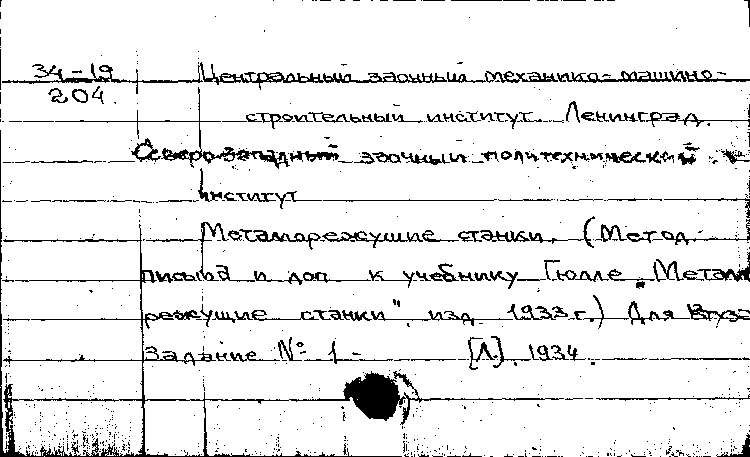 34-19
204.
Центральный заочный механико-машино-
строительный институт. Ленинград.
Северо-Западный заочный политехнический
институт
Металлорежущие станки. (Метод.
письма и доп. к учебнику Гюлле "Металло
режущие станки", изд. 1933 г.) Для Втуза
Задание № 1 - [Л]. 1934.